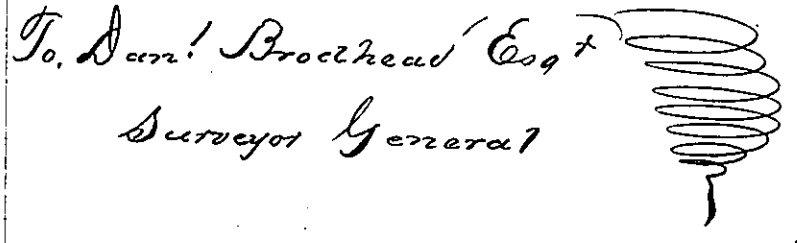 To, Danl Brodhead Esqr
Surveyor General